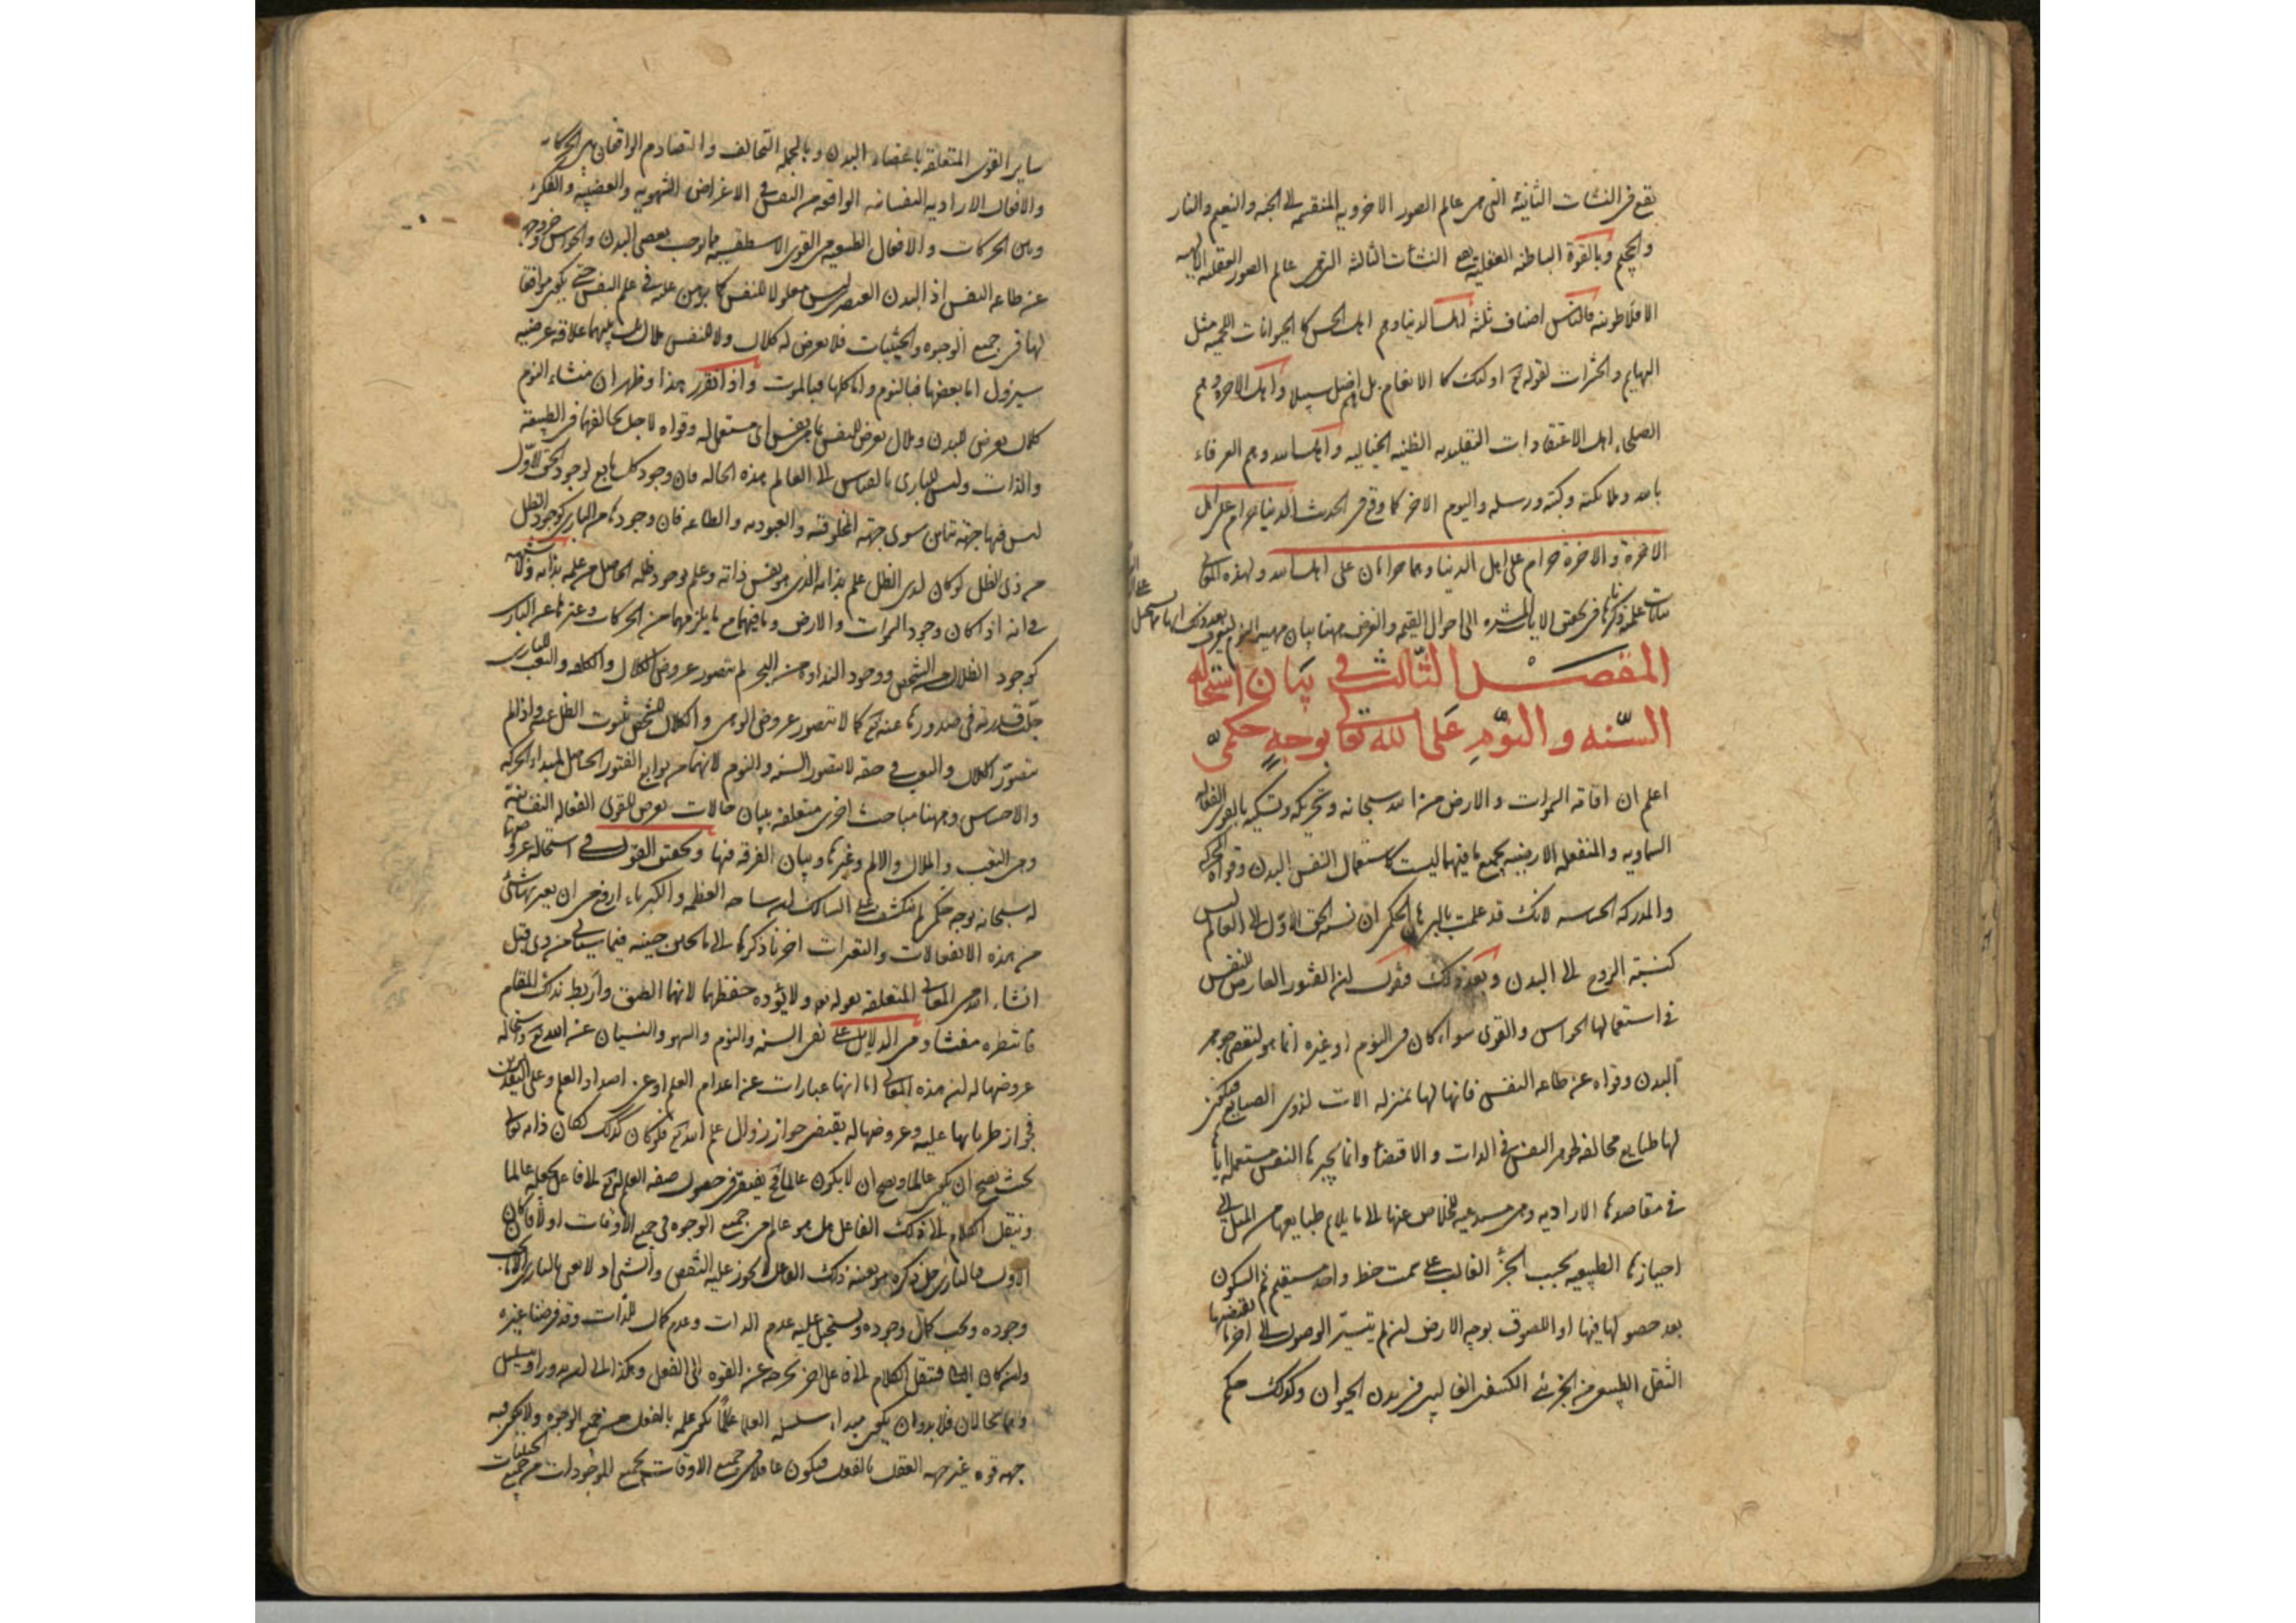 تقع فى النشات الثانية التى هى عالم الصور الاخرويه المنقسمه الى الجنه والنعيم والنار
والجحيم وبالقوة الباطنه العقليه النشات الثالثه التى هى عالم الصور العقليه الالهيه
الافلاطونيه فالناس اصناف ثلثة اهل الدنيا وهم اهل الحس كالحيوانات اللحميه مثل
البهايم والحشرات لقوله تع اولئك كالانعام بل هم اضل سبيلا واهل الاخره وهم
الصلحاء اهل الاعتقادات التقليديه الظنيه الخياليه واهل الله وهم العرفاء
بالله وملائكته وكتبه ورسله واليوم الاخر كما وقع فى الحديث الدنيا حرام على اهل
الاخرة والاخرة حرام على اهل الدنيا وهما حرامان على اهل الله ولهذه المعانى
الى احوال القيمه والغرض ههنا بيان مهية النوم
المفصل الثالث فى بيان استحاله
السنه والنوم على الله تعا بوجه حكمى
اعلم ان اقامة السموات والارض من الله سبحانه وتحريكه وتسكينه بالقوى الفعاله
السماويه والمنفعله الارضيه بجميع ما فيهما ليست كاستعمال النفس البدن وقواه المحركه
والمدركه الحساسه لانك قد علمت بالبرهان الحكمى ان نسبه الحق الاول الى العالم ليس
كنسبة الروح الى البدن وبعد ذلك فنقول لان الفتور العارض للنفس
فى استعمالها الحواس والقوى سواء كان فى النوم او غيره انما هو لتعصى جوهر
البدن وقواه عن طاعه النفس فانها لها بمنزله الات لذوى الصنايع فيكون
لها طبايع مخالفه لجوهر النفس فى الذات والاقتضاء وانما يجبرها النفس مستعمله اياها
فى مقاصدها الاراديه وهى مستدعيه للخلاص عنها الى ما يلايم طبايعها من الميل الى
احيازها الطبيعيه بحسب الجزء الغالب على سمت خط واحد مستقيم ثم السكون
بعد حصولها فيها او اللصوق بوجه الارض ان لم يتيسر الوصول الى اخر ما يقتضيها
الثقل الطبيعى من الجزء الكثيف الغالب فى بدن الحيوان وكذلك حكم
ساير القوى المتعلقه باعضاء البدن وبالجمله التخالف والتصادم الواقعان بين الحركات
والافعال الاراديه النفسانيه الواقعه من النفس فى الاغراض الشهويه والغضبيه والفكريه
وبين الحركات والافعال الطبيعيه من القوى الاسطقسيه مما يوجب تعصى البدن والحواس وخروجها
عن طاعه النفس اذ البدن العنصرى ليس معلولا للنفس كما برهن عليه فى علم النفس حتى يكون موافقا
لها فى جميع الوجوه والحيثيات فلا يعرض له كلال ولا للنفس ملال بل بينهما علاقه عرضيه
سيزول اما بعضها فبالنوم واما كلها فبالموت واذا تقرر هذا وظهر ان منشاء النوم
كلال يعرض للبدن وملال يعرض للنفس بما هى نفس اى مستعمله وقواه لاجل تخالفهما فى الطبيعة
والذات وليس للبارى بالقياس الى العالم هذه الحاله فان وجود كل تابع لوجود الحق الاول
ليس فيها جهة تباين سوى جهة المخلوقيه والعبوديه والطاعه فان وجودها من البارى كوجود الظل
من ذى الظل لو كان لذى الظل علم بذاته الذى هو نفس ذاته وعلم بوجود ظله الحاصل من علمه بذاته ولا شبهه
فى انه اذا كان وجود السموات والارض وما فيهما مع ما يلزمهما من الحركات وغيرها عن البارى
كوجود الظلال من الشخص ووجود النداوة من البحر لم يتصور عروض الكلال والكلفه والتعب للبارى
جلت قدرته فى صدورها عنه تع كما لا يتصور عروض الوهن والكلال للشخص ثبوت الظل عنه واذا لم
يتصور الكلال والتعب فى حقه لا يتصور السنه والنوم لانهما من توابع الفتور الحاصل لمبداء الحركه
والاحساس وههنا مباحث اخرى متعلقه ببيان حالات يعرض للقوى الفعاله النفسانية
وهى التعب والملال والالم وغيرها وبيان الفرقه فيها وتحقيق القول فى استحاله عروضها
له سبحانه بوجه حكمى لم ينكشف على السالك لديه ساحه العظمه والكبرياء ارفع من ان يعتريها شئ
من هذه الانفعالات والتغيرات اخرنا ذكرها الى ما يحين حينه فيما سياتى من ذى قبل
انشاء الله من المعانى المتعلقه بقوله تعا ولا يؤده حفظهما لانها الصق واربط بذلك المقام
فانتظره مفتشا ومن الدلايل على نفى السنه والنوم والسهو والنسيان عن الله تع واستحاله
عروضها له ان هذه المعانى اما انها عبارات عن اعدام العلم او عن اضداد العلم وعلى التقديرين
فجواز طريانها عليه وعروضها له يقتضى جواز زوال علم الله تع فلو كان كذلك لكان ذاته تعا
بحيث يصح ان يكون عالما ويصح ان لا يكون عالما فح يفتقر فى حصول صفه العلم له تع الى فاعل يجعله عالما
وننقل الكلام الى ذلك الفاعل هل هو عالم من جميع الوجوه فى جميع الاوقات او لا فان كان
الاول فالبارى جل ذكره هو بعينه ذلك الفاعل لا يجوز عليه النقص والشين اذ لا نعنى بالبارى الا ما يجب
وجوده ويجب كمال وجوده ويستحيل عليه عدم الذات وعدم كمال للذات وقد فرضنا غيره
وان كان الثانى فننقل الكلام الى فاعل اخر يخرجه عن القوه الى الفعل وهكذا الى ان يدور او يتسلسل
وهما محالان فلا بد وان يكون مبداء سلسله العلم عالما يكون علمه بالفعل من جميع الوجوه ولا يكون فيه
جهه قوه غير جهه العقل بالفعل فيكون عاقلا فى جميع الاوقات بجميع الموجودات من جميع الحيثيات